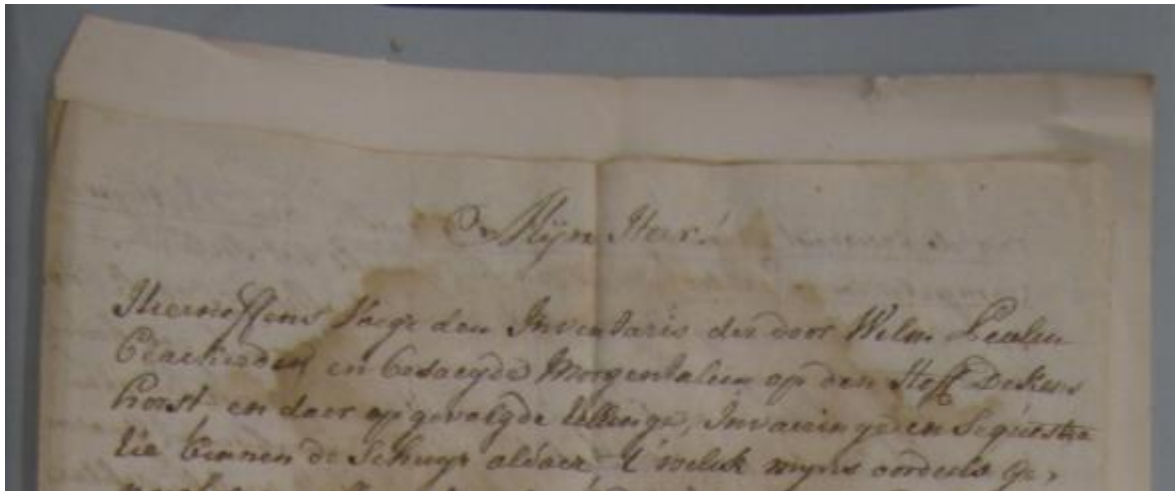 Mijn Heer!
Hierneffens Voege den Inventaris der door Wilm
en besaeyde Morgentalen op den Hoff Dickens
horst, en daer op gevolgde tellinge, Invaeringe en Sequestra
tie binnen de Schuyr aldaer, 't welck myns oordeels ge,